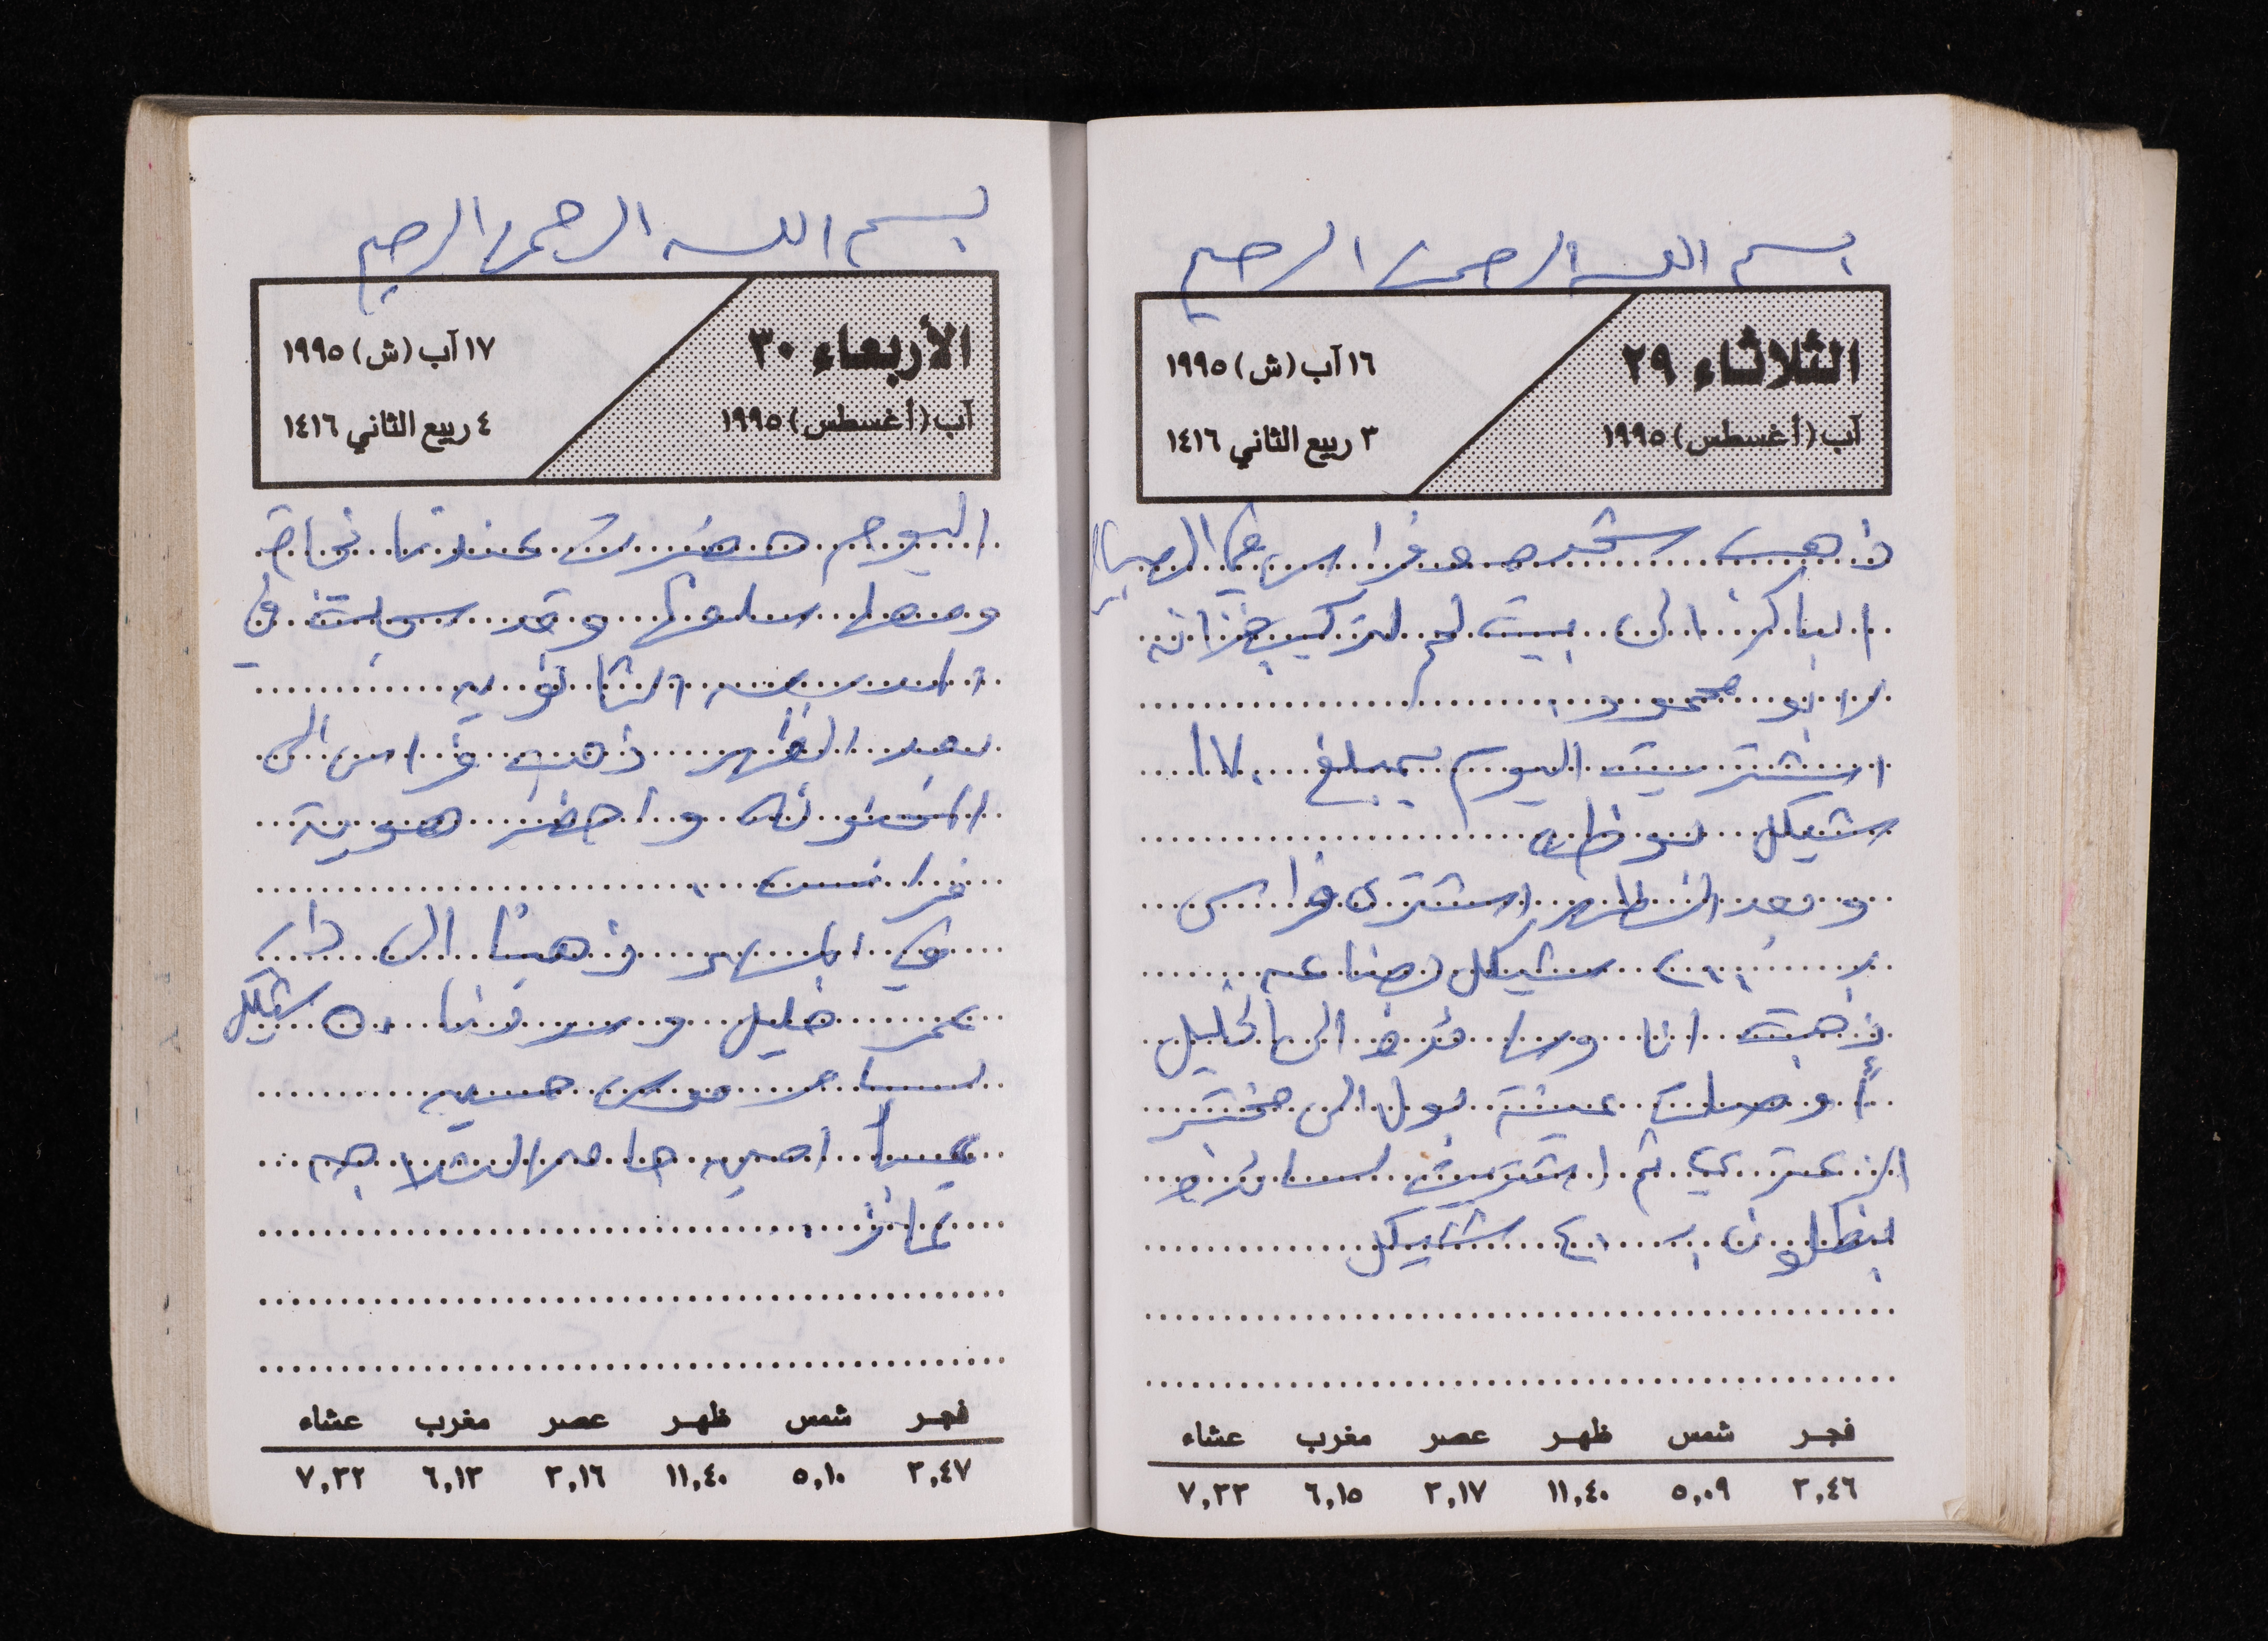 بسم الله الرحمن الرحيم
الثلاثاء ٢٩
آب (أغسطس) ١٩٩٥
١٦ آب (ش) ١٩٩٥
٣ ربيع الثاني ١٤١٦
ذهب شحده وفراس في الصباح
الباكر الى بيت لحم لتركيب خزانه
لابو محمود.
اشتريت اليوم بمبلغ ١٧٠
شيكل بوظه
وبعد الظهر اشترى فراس
ب ٢٠٠ شيكل بضاعه
ذهبت انا و الى الخليل
أوصلت عينة بول الى مختبر
الزعتري ثم اشتريت
بنطلون ب ٤٠ شيكل
فجر شمس ظهر عصر مغرب عشاء
٣,٤٦ ٥,٠٩ ١١,٤٠ ٣,١٧ ٦,١٥ ٧,٣٣
بسم الله الرحمن الرحيم
الأربعاء ٣٠
آب (أغسطس) ١٩٩٥
١٧ آب (ش) ١٩٩٥
٤ ربيع الثاني ١٤١٦
اليوم حضرت عندنا نجاة
ومعها سلمى وقد سجلت في
المدرسه الثانويه
بعد الظهر ذهب فراس الى
واحضر هوية
فراس.
في المساء ذهبنا الى دار
عمر خليل ٥٠ شيكل
موسى حسين
عبأ امين حامل الثلاجه
غاز.
فجر شمس ظهر عصر مغرب عشاء
٣,٤٧ ٥,١٠ ١١,٤٠ ٣,١٦ ٦,١٣ ٧,٣٢